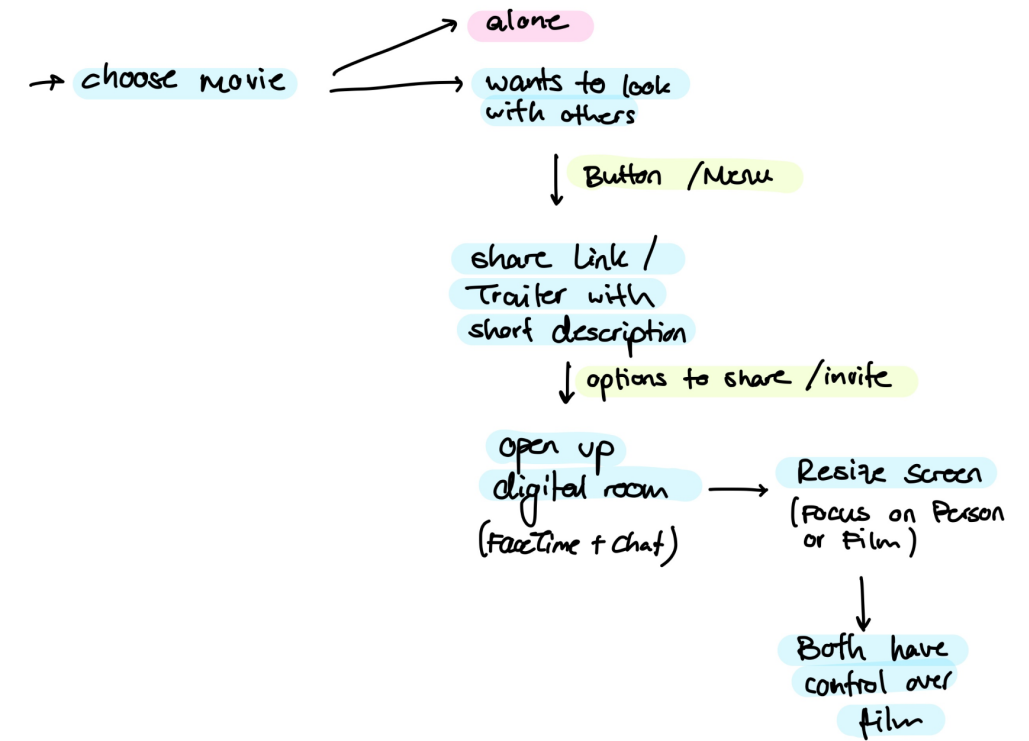 alone
choose movie
wants to look
with others
Button / Menu
share Link /
Trailer with
short description
options to share / invite
open up
digital room
(FaceTime + Chat)
Resize Screen
(Focus on Person
or Film)
Both have
control over
film